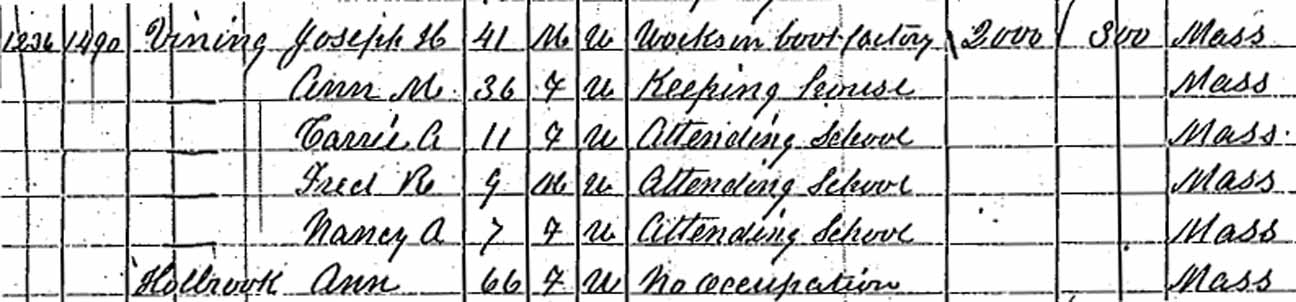 1236 1490 Vining Joseph H 41 M W Works in boot factory 2000 300 Mass
Ann M. 36 F W Keeping house Mass
Carrie A 11 F W Attending School Mass
Fred R 9 M W Attending School Mass
Nancy A 7 F W Attending School Mass
Holbrook Ann 66 F W No occupation Mass